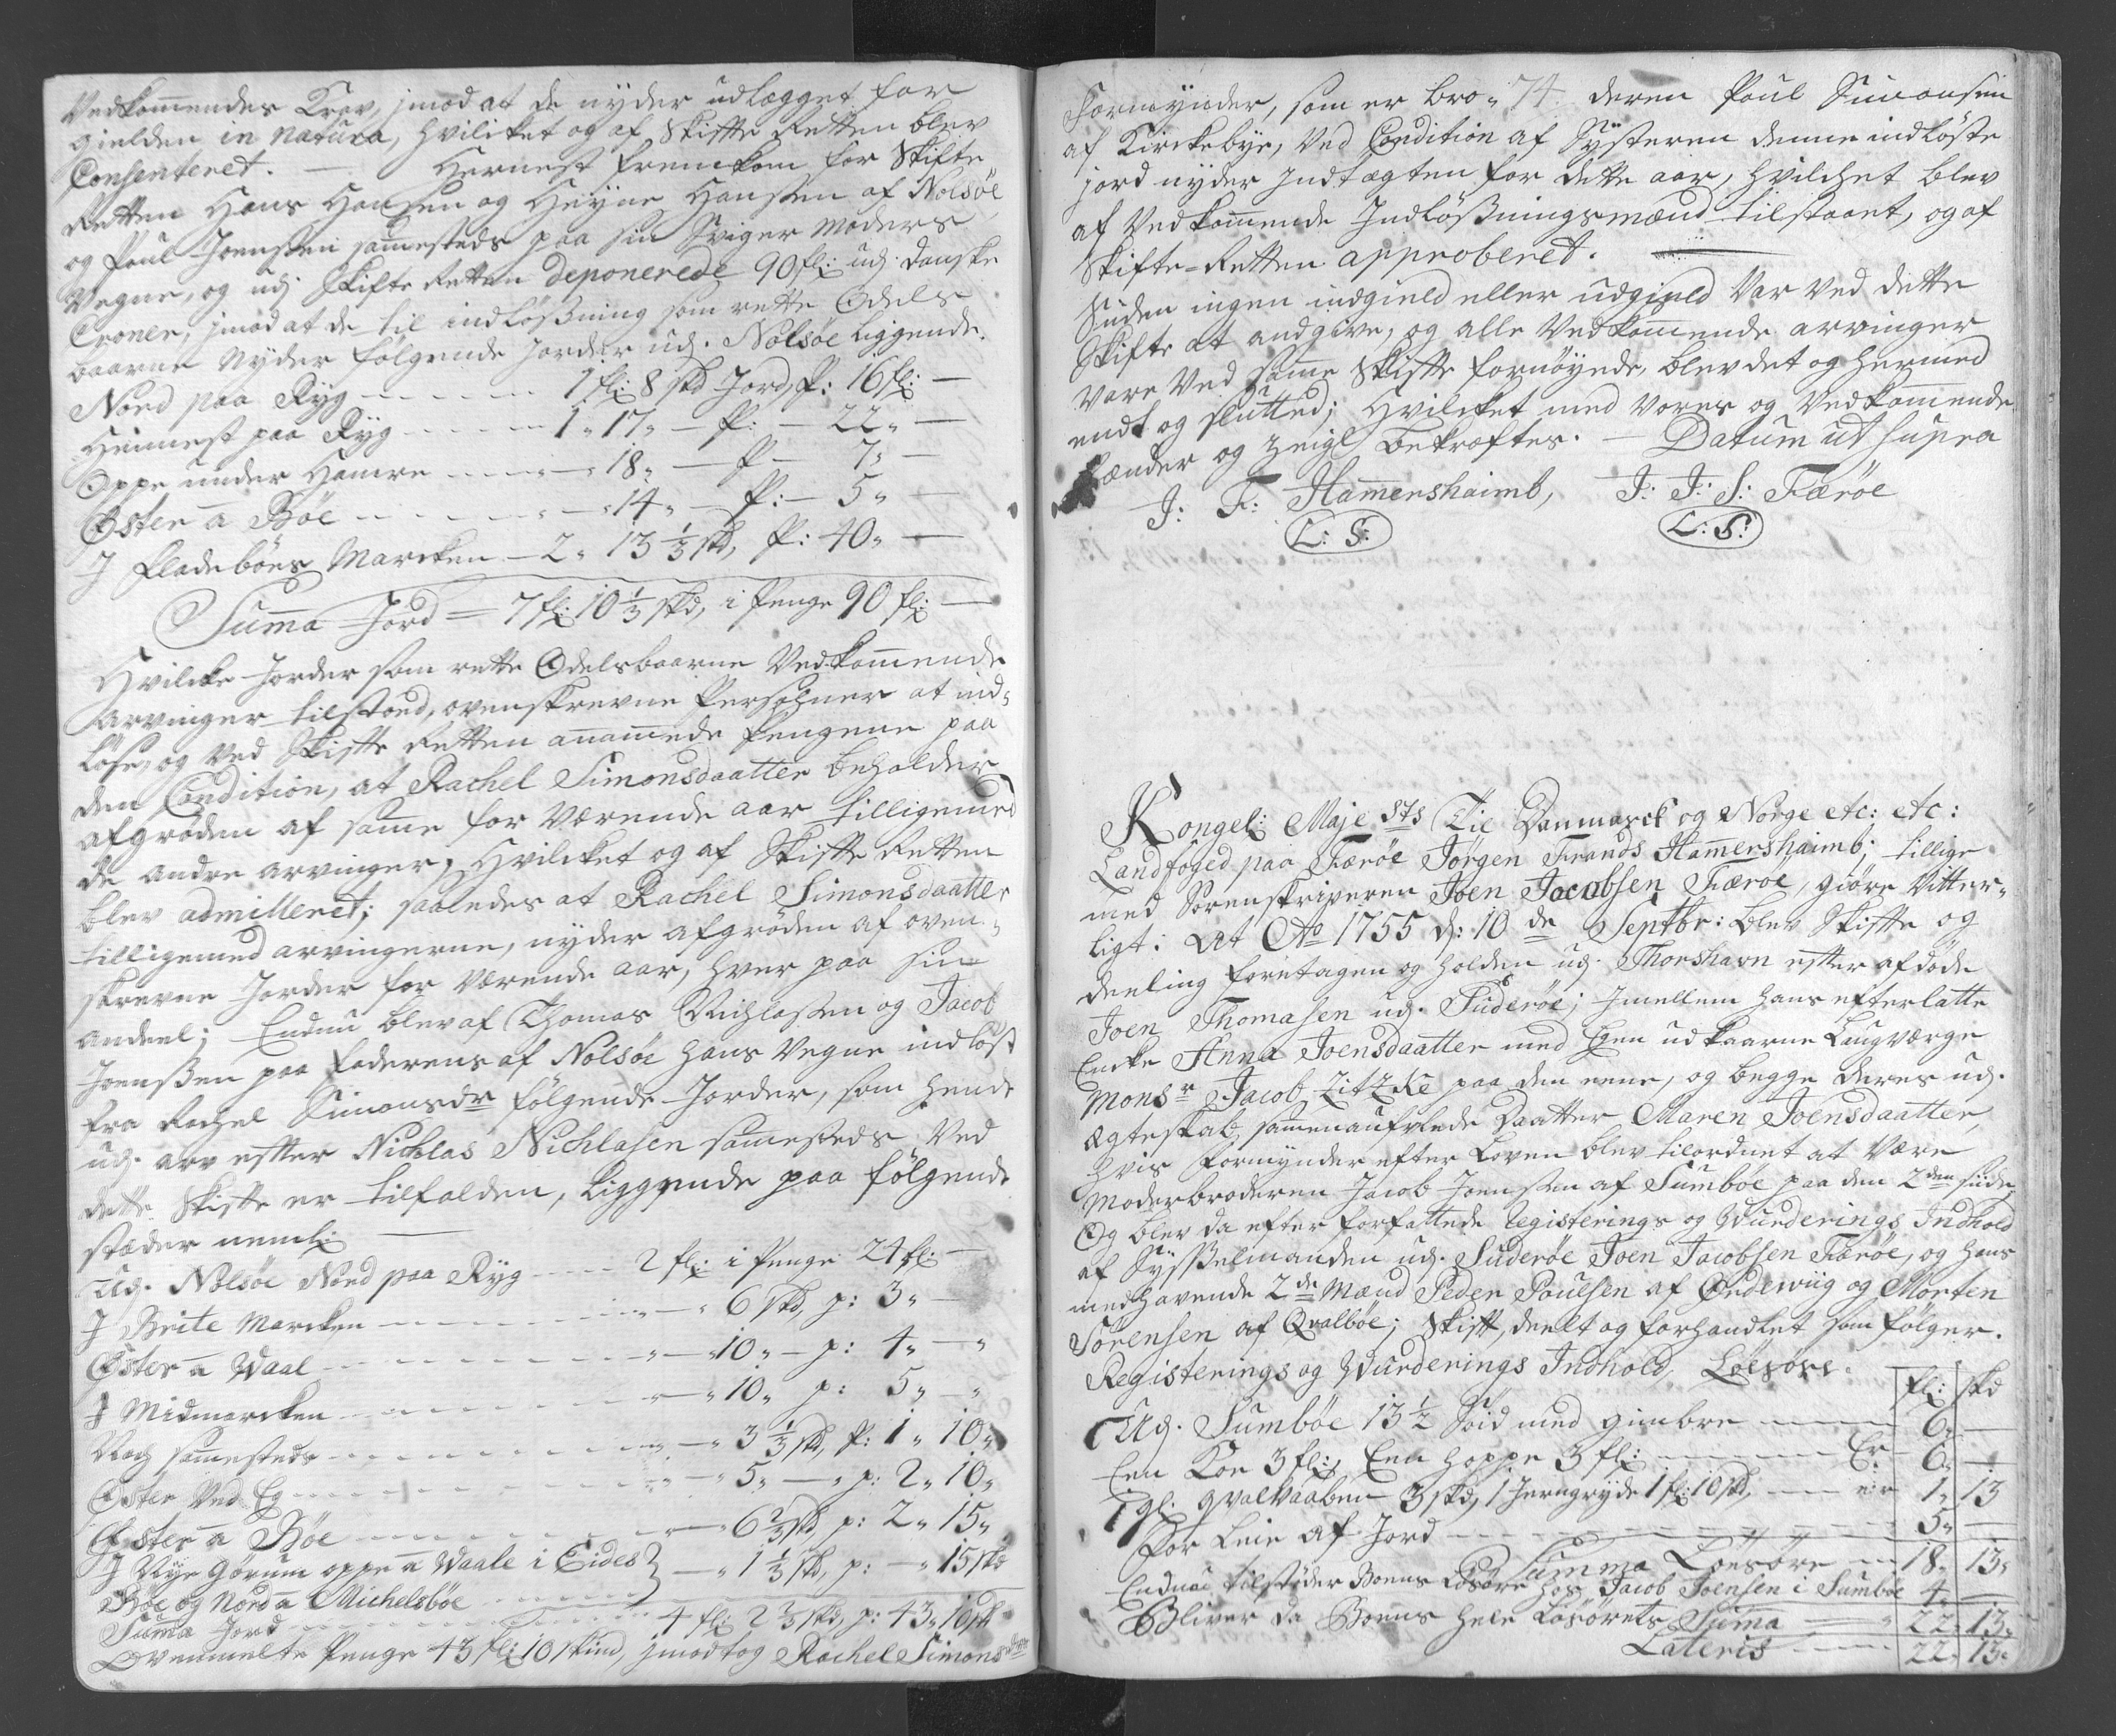 Vedkom̄endes Krav, imod at de nyder udlægget for
gielden in natura, hvilcket og af Skifte Retten blev
Consenteret. — Hernest fremkom for Skifte
Retten Hans Hansen og Heyne Hansen af Nolsöe
og Poul Joenssen sam̄esteds paa sin Sviger Moders
Vegne, og udj Skifte Retten deponerede 90 fl: udj danske
Croner, imod at de til indlössning som rette Odels
baarne Nyder fölgende Jorder udj. Nolsöe liggende.
Nord paa Ryg - - - - - 1 fl: 8 skd Jord, P: 16 fl: —
Heimest paa Ryg - - - - 1 „ 17 „ — P: — 22 „ —
Oppe under Hamre - - - - „ — 18 „ — P — 7 „ —
Öster a Böe - - - - - „ — 14 „ — P: — 5 „ —
J Fladeböes Marcken — 2 „ 13 1/3 skd, P: 40 „ —
Sum̄a Jord = 7 fl: 10 1/3 skd, i Penge 90 fl: —
Hvilcke Jorder som rette Odelsbaarne Vedkom̄ende
Arvinger tilstoed, ovenskrevne Persohner at ind-
löse, og ved Skifte Retten anam̄ede Pengene paa
den Condition, at Rachel Simonsdaatter beholder
afgröden af sam̄e for Værende aar tilligemed
de andre arvinger, Hvilcket og af Skifte Retten
blev admitteret; saaledes at Rachel Simonsdaatter
tilligemed arvingerne, nyder afgröden af oven-
skrevne Jorder for Værende aar, hver paa sin
andeel; Endnu blev af Thomas Nichlassen og Jacob
Joenssen paa Faderens af Nolsöe hans Vegne indlöst
fra Rachel Simonsdr fölgende Jorder, som hende
udj. arv efter Nichlas Nichlasen sam̄esteds Ved
dette Skifte er tilfalden, liggende paa fölgende
stæder nemℓ: —
Udj. Nolsöe Nord paa Ryg - - - 2 fl: i Penge 24 fl: —
J Breite Marcken - - - - - „ — „ 6 skd, p: 3 „ —
Öster a Waal - - - - - „ — „ 10 „ — p: 4 „ — „
J Midmarcken - - - - - „ — „ 10 „ p: 5 „ — „
Noch sam̄esteds - - - - - „ — „ 3 1/3 skd, P: 1 „ 10 „
Öster Ved Eg - - - - - „ — „ 5 „ — „ p: 2 „ 10 „
Öster a Böe - - - - - „ — „ 6 2/3 skd, p: 2 „ 15 „
J Nye Görum oppe a Waale i Eides } — „ 1 1/3 skd, p: — „ 15 skd
Böe og Nord a Michelsböe - - -
Sum̄a Jord - - - - 4 fl: 2 1/3 skd, p: 43 „ 10 skd
Ovenmelte Penge 43 fl: 10 skind, imodtog Rachel Simonsdatter
Formynder, som er bro- 74 deren Poul Simonsen
af Kirckebye, Ved Condition at Systeren denne indlöste
jord nyder Indtægten for dette aar, hvilchet blev
af Vedkom̄ende Indlössningsmænd tilstaaet, og af
Skifte-Retten approberet. —
Siden ingen indgield eller udgield Var ved dette
Skifte at andgive, og alle Vedkom̄ende arvinger
vare Ved sam̄e Skifte fornöyede, blev det og hermed
endt og slutted; Hvilcket med Vores og Vedkom̄ende
hænder og Zeigl bekræftes. — Datum ut supra
J: F: Ham̄ershaimb, J: J: S: Færöe
L: S: L: S:
Kongel: Maje sts Til Danmarck og Norge etc: etc:
Landfoged paa Færöe Jörgen Frands Ham̄ershaimb; tillige
med Sorenskriveren Joen Jacobsen Færöe, giöre Vitter-
ligt: At Ao 1755 d: 10 de Septbr: blev Skifte og
deeling foretagen og holden udj. Thorshavn efter afdöde
Joen Thomasen udj. Suderöe; Jmellem hans efterlatte
Encke Anna Joensdaatter med Egen udkaarne Laugværge
Monsr Jacob Zitzke paa den eene, og begge deres udj.
ægteskab sam̄enauflede Daatter Maren Joensdaatter,
hvis Formynder efter Loven blev tilordnet at Være
Moderbroderen Jacob Joenssen af Sumböe paa den 2den siide
Og blev da efter forfattede Registerings og Wurderings Indhold
af Sysselmanden udj. Suderöe Joen Jacobsen Færöe, og hans
medhavende 2de Mænd Peder Poulsen af Ördewiig og Morten
Sörensen af Qvalböe; Skift, deelt og forhandlet som fölger.
Registerings og Wurderings Indhold, Löesöre.
fl: skd
Udj. Sumböe 13 1/2 Söid med gimbre - - - 6 „ —
Een Koe 3 fl:, Een hoppe 3 fl: - - - - Er 6 „ —
1 gl. qvalvaaben 3 skd, 1 Jerngryde 1 fl: 10 skd, - - er 1 „ 13
For Leie af Jord - - - - - 5 „ —
Summa Löesöre - - 18 „ 13 „
Endnu tilstöder Boens Lösöre hos Jacob Joensen i Sumböe 4 „ —
Bliver da Boens hele Lösörets Sum̄a — 22 „ 13 „
Lateris - - - 22 „ 13 „